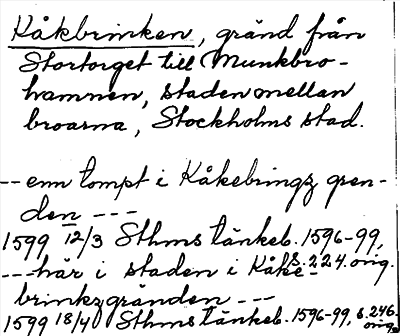 Kåkbrinken, gränd från
Stortorget till Munkbro-
hamnen, staden mellan
broarna, Stockholms stad.
-- enn tompt i Kåkebringz gren-
den ---
1599 12/3 Sthms tänkeb. 1596-99,
s. 224. orig.
--- här i staden i Kåke-
brinkzgränden ---
1599 18/4 Sthms tänkeb. 1596-99, s. 246.
orig.